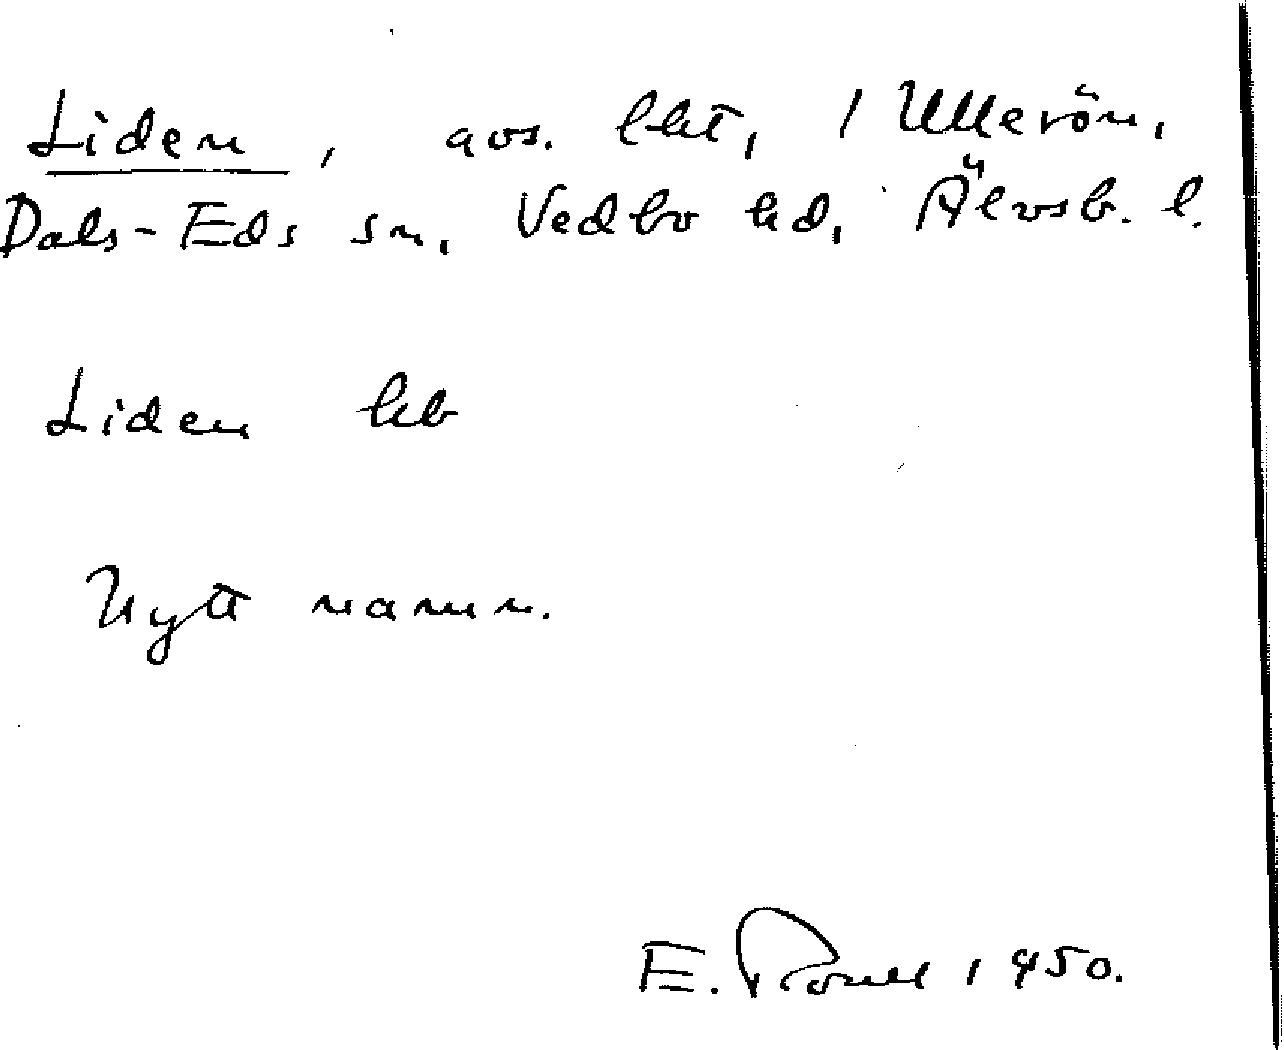 Liden, avs. lht, 1 Ullerön,
Dals-Eds sn, Vedbo hd, Älvsb. l.
Liden hb
Nytt namn.
E. 1950.